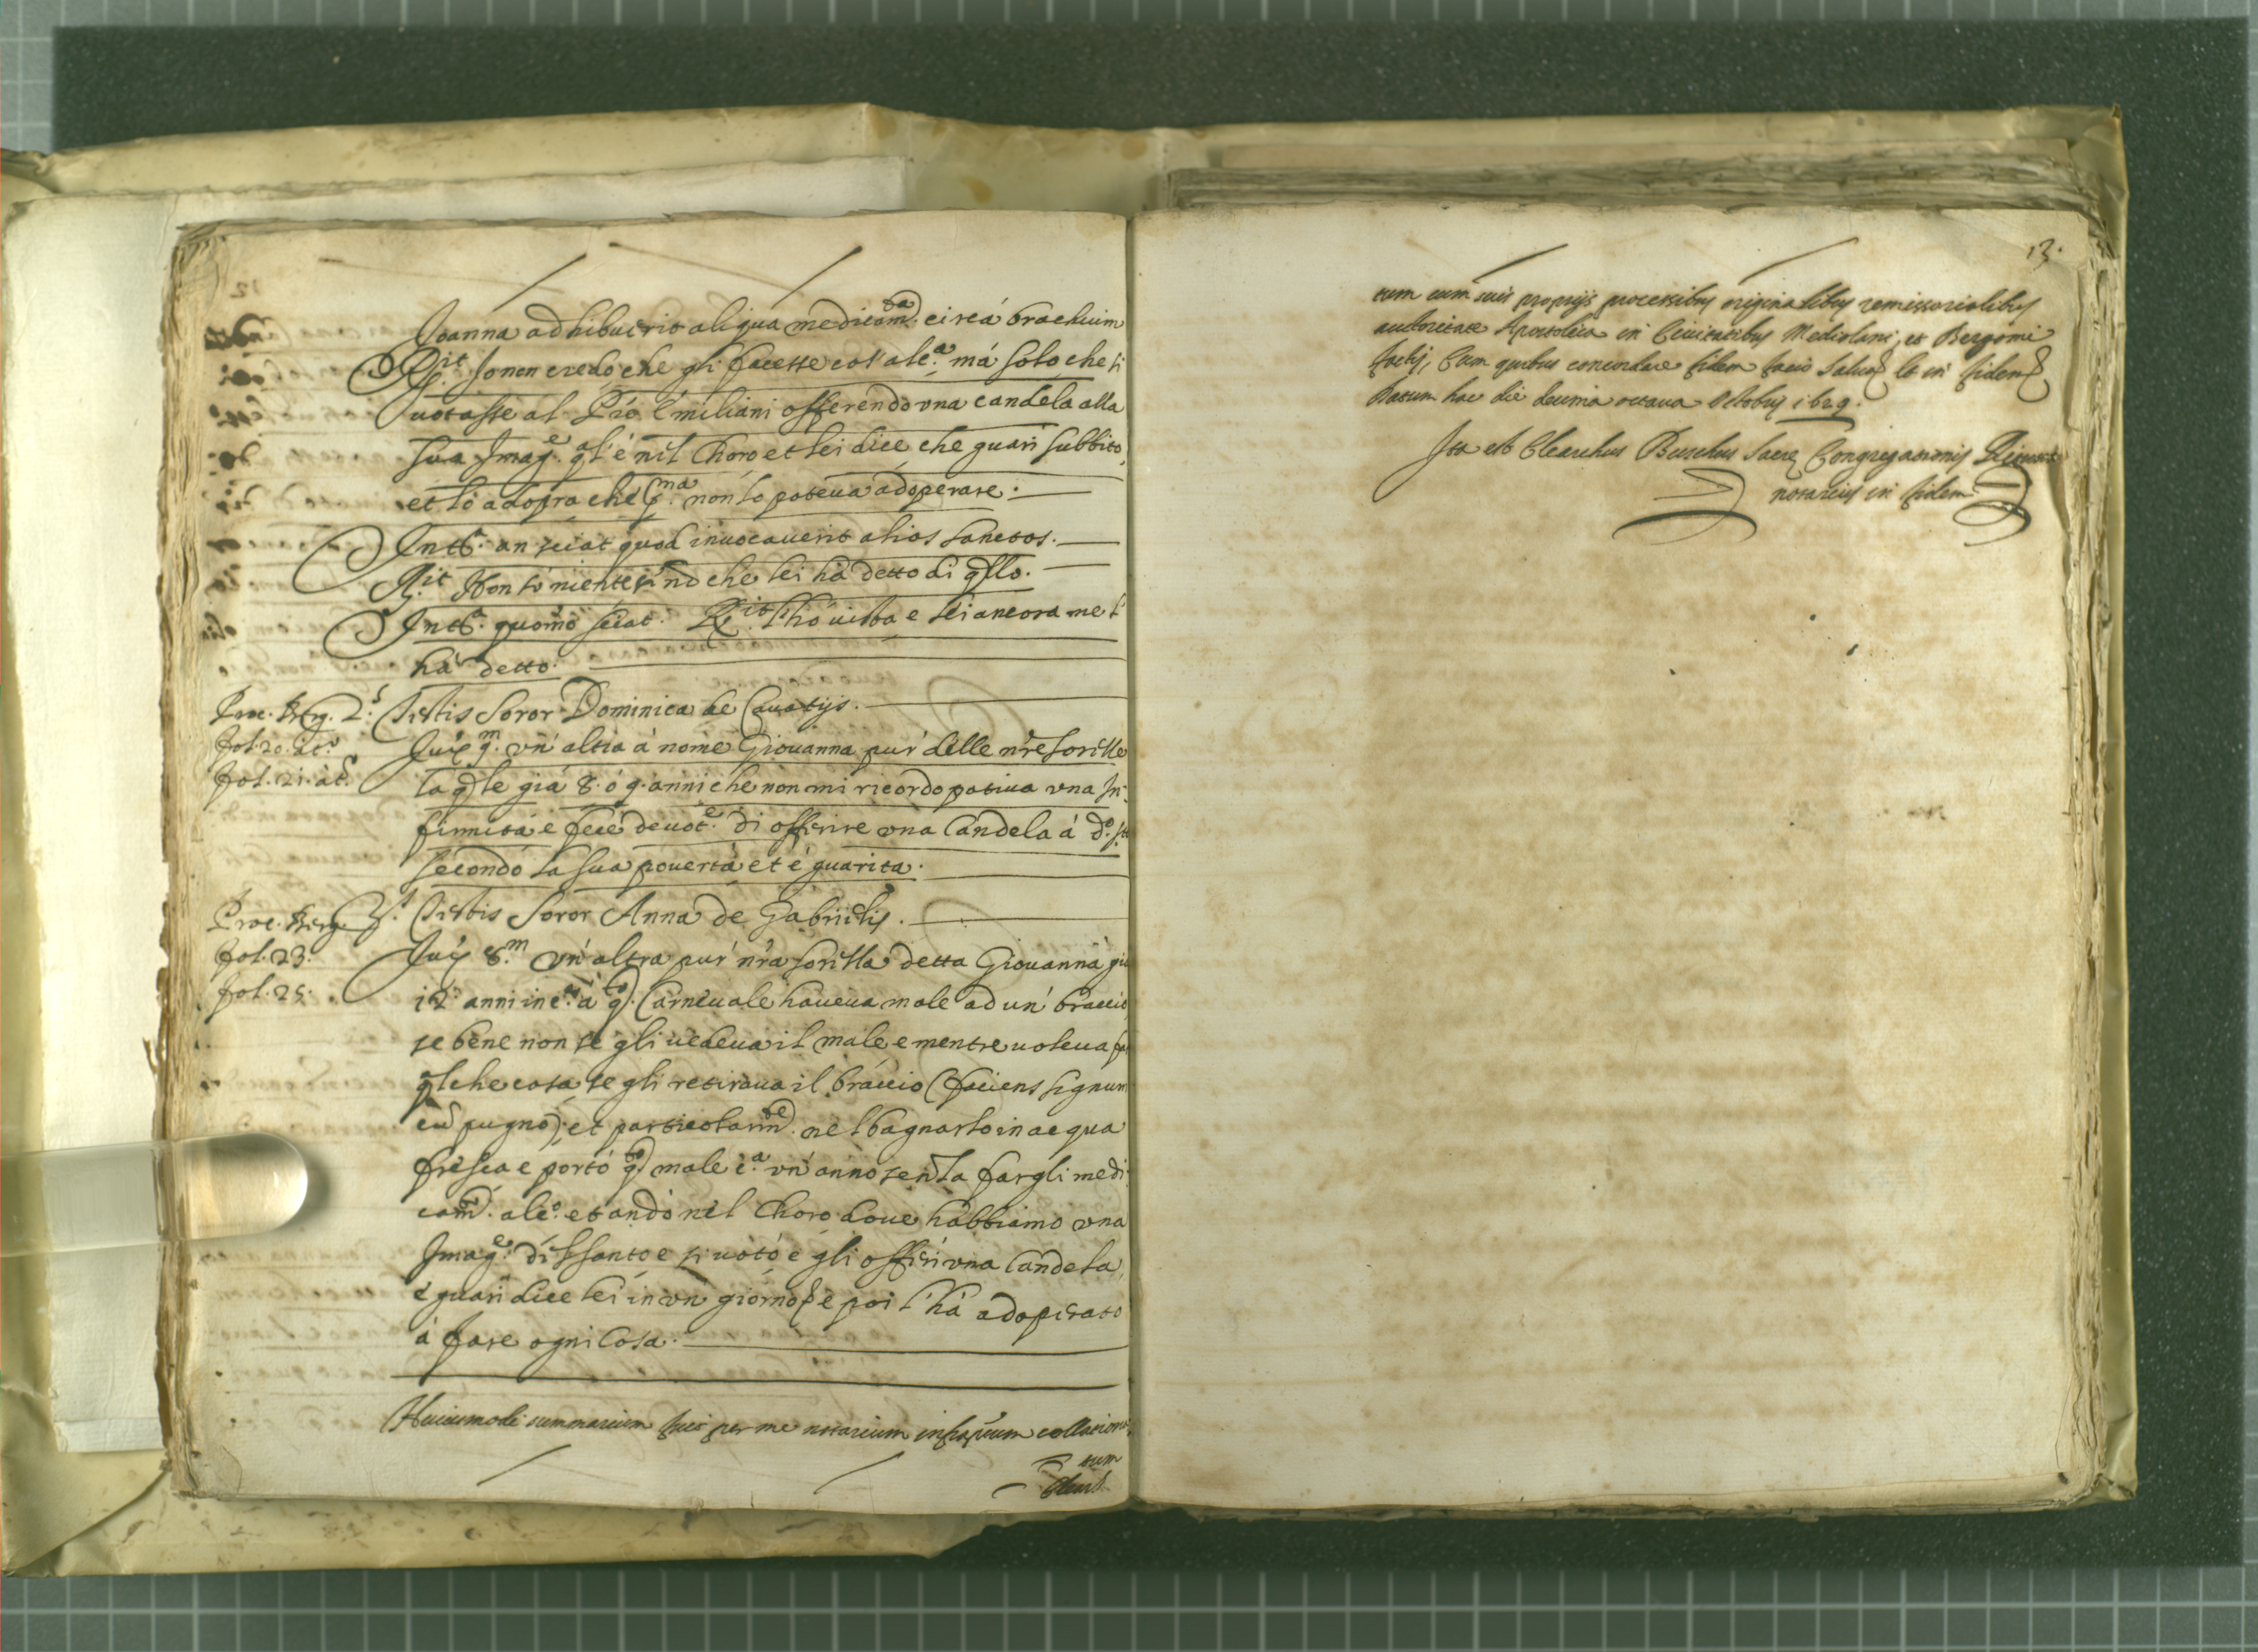 Joanna adhibuerit aliqua medicam.ta circá brachium
R.it Io non credo che gli facesse cos' alc.a má solo che si
uotasse al P̃rĕ Emiliani offerendo vna candela alla
sua Imag.e ql' é nel Choro et lei dice che guarì subbito,
et lo adopra che p.ma non lo poteua adoperare.
Int. an sciat quod inuocauerit alios sanctos.
R.it Non so niente se nó che lei há detto di qllo.
Int. quomõ sciat. R.it l'hò uista e lei ancora me l'
há detto.
Proc. Berg. 2.s Testis Soror Dominica de Cauatijs.
fol. 20. at.o
Jux. 9.m vn' altra á nome Giouanna pur' delle nr̃e sorelle
fol. 21. at.
la qle giá 8. ó 9. anni che non mi ricordo patiua vna In-
firmitá e fece deuot.e di offerire vna Candela á d.o
secondo la sua pouertá et é guarita.
Proc. Berg. 3.s Testis Soror Anna de Gabrielis.
fol. 23.
Jux. 8.m Vn' altra pur' nr̃a sorella detta Giouanna giá
fol. 25.
12 anni inc. á q.to Carneuale haueua male ad un' braccio
se bene non se gli uedeua il male e mentre uoleua far
qlche cosa se gli retiraua il braccio (faciens signum
cũ pugno), et particolarm.te nel bagnarlo in acqua
fresca e portó q.to male c.a vn' anno senza fargli medi-
cam. alc.o et andó nel Choro doue habbiamo vna
Imag.e di S santo e si uotó e gli offerí vna Candela,
é guari dice lei in vn giorno, e poi l'há adoperato
á fare ogni Cosa.
Huiusmodi summarium fuit per me notarium infrap̃tum collationa-
tum
13.
tum cum suis proprijs processibus originalibus remissorialibus
auctoritate Apostolica in Ciuitatibus Mediolani, et Bergomi
factis, Cum quibus concordare fidem facio saluo etc. in fidem
Datum hac die decima octaua Octobris 1629.
Ita est Clearchus Buschus Sacrę Congregationis Rituum
notarius in fidem